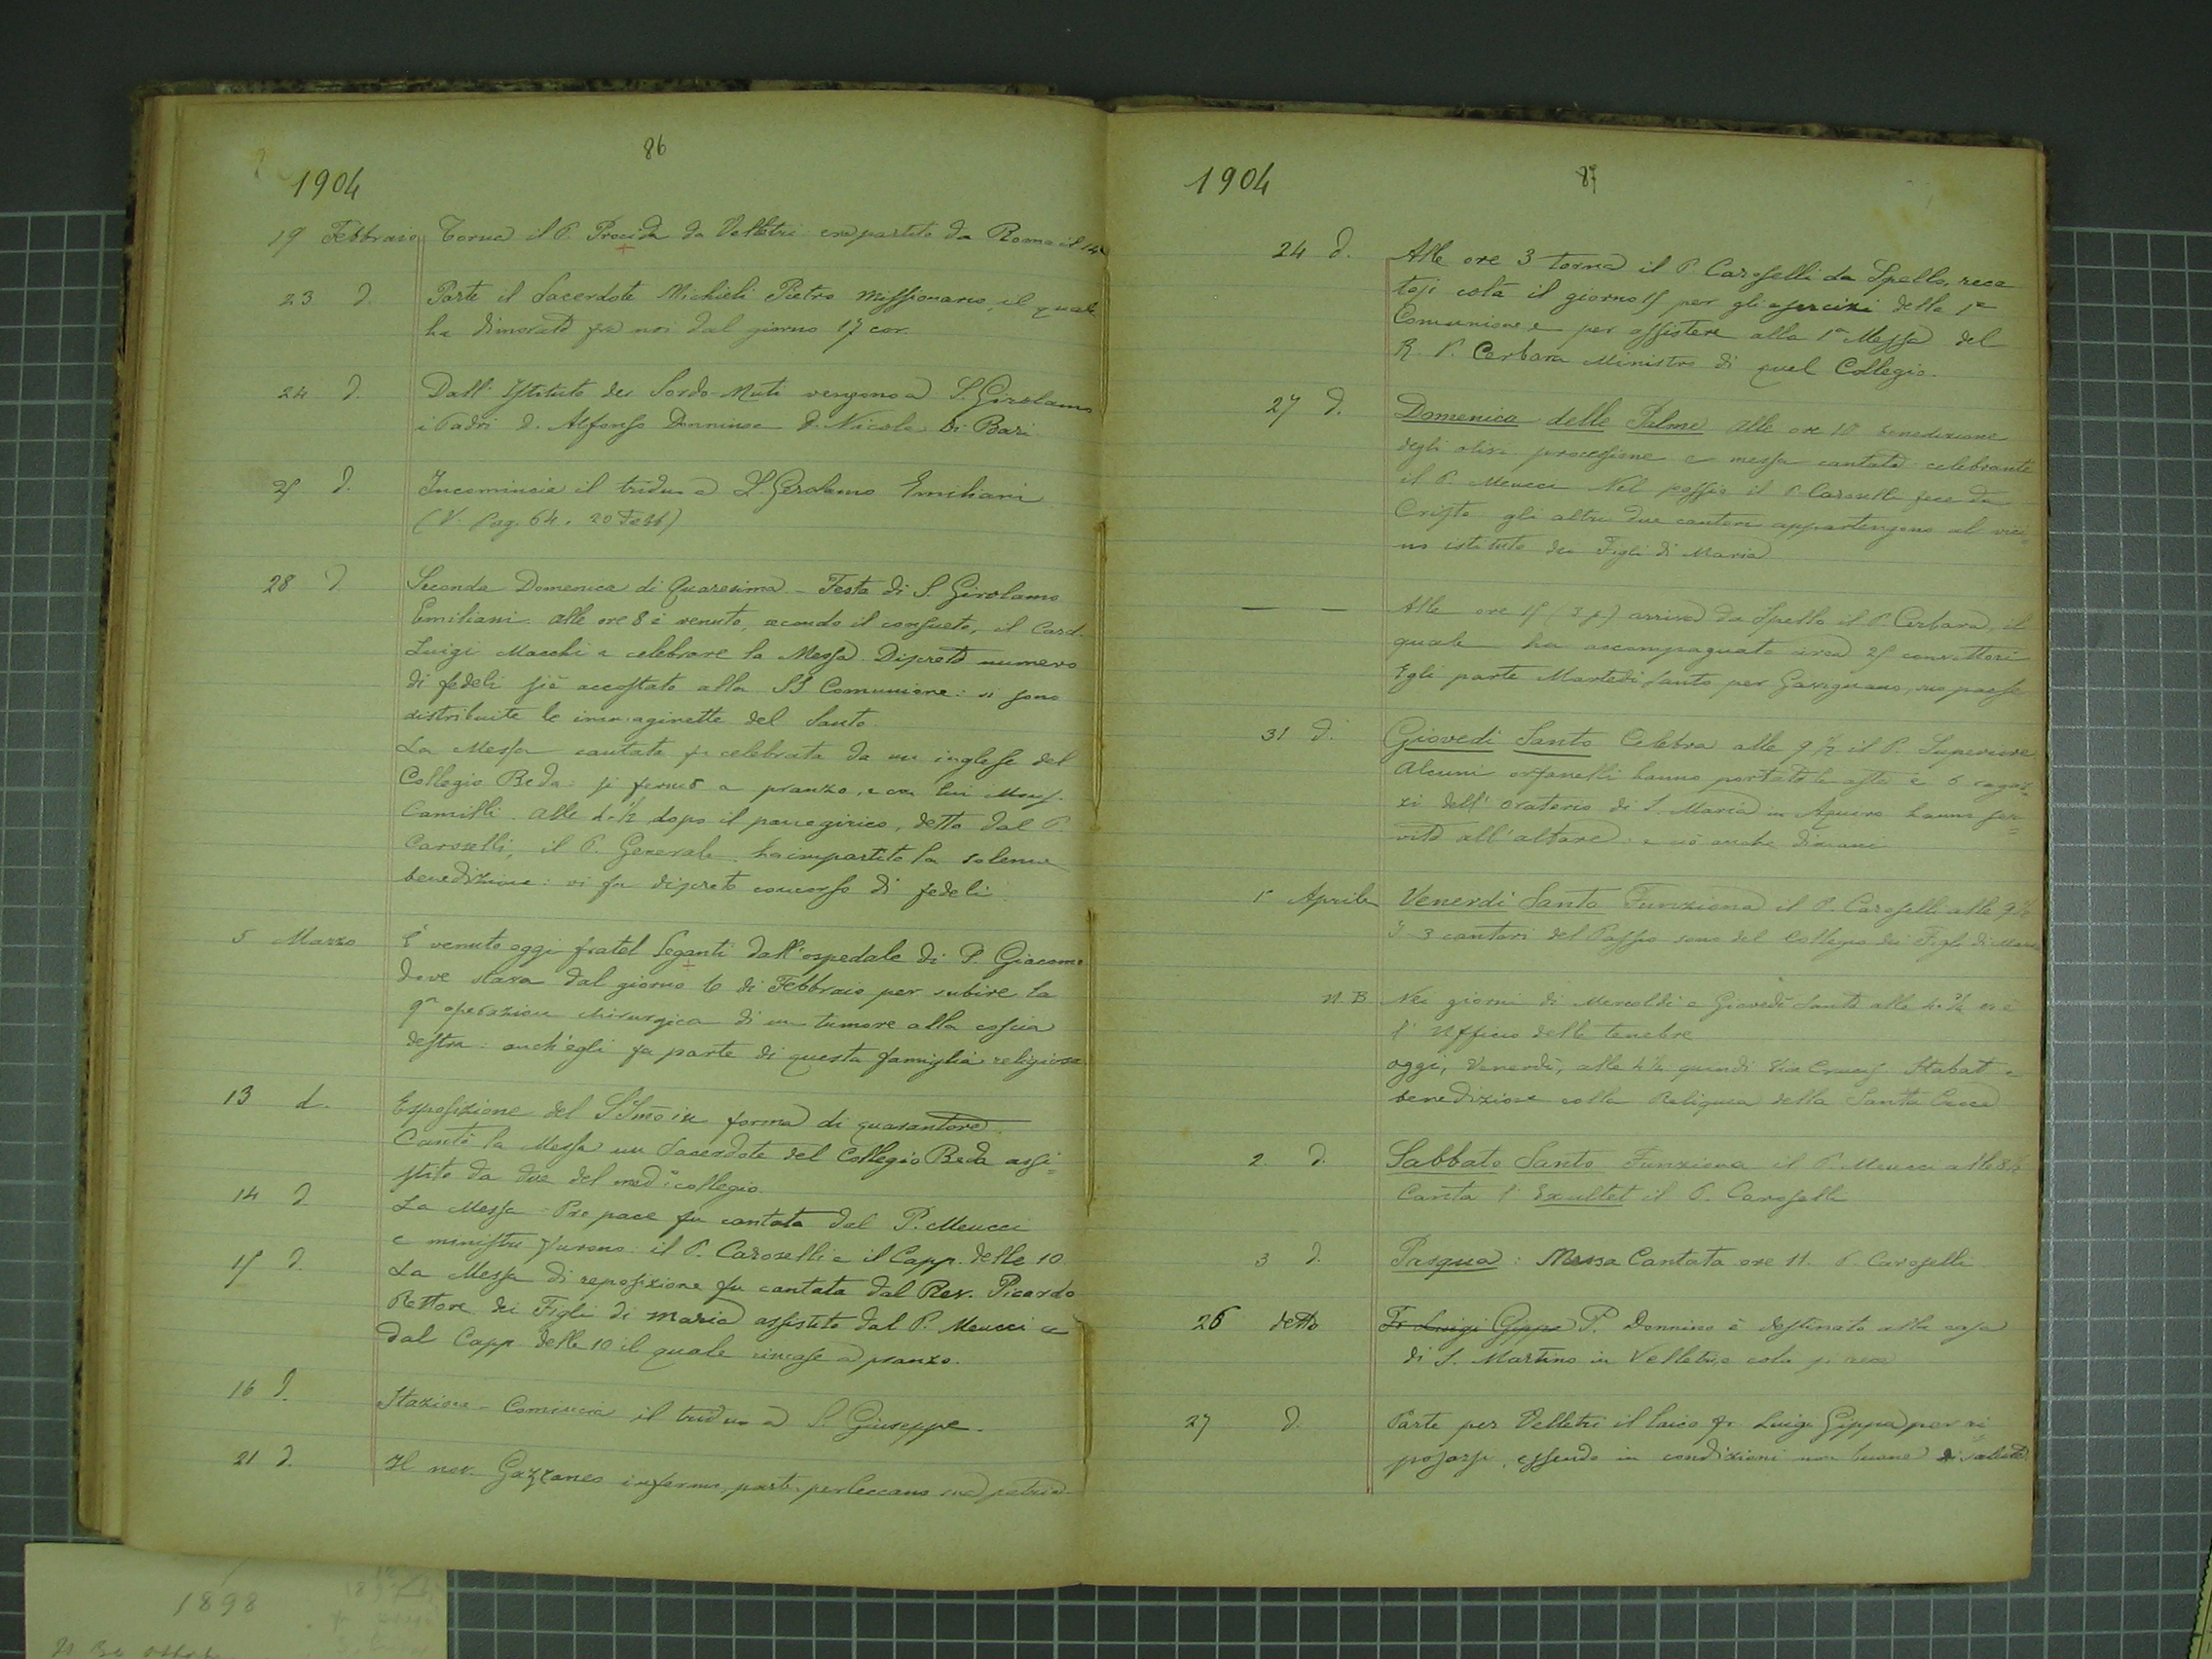 86
1904
19 Febbraio Torna il P. Procida da Velletri era partito da Roma il 14
23 d. Parte il Sacerdote Michieli Pietro Missionario, il quale
ha dimorato fra noi dal giorno 17 cor.
24 d. Dall' Istituto dei Sordo-Muti vengono a S. Girolamo
i Padri D. Alfonso Donnino e D. Nicola Di Bari.
25 d. Incomincia il triduo a S. Gerolamo Emiliani
(V. Pag. 64. 20 Febb)
28 d Seconda Domenica di Quaresima - Festa di S. Girolamo
Emiliani. alle ore 8 è venuto, secondo il consueto, il Card.
Luigi Macchi a celebrare la Messa. Discreto numero
di fedeli si è accostato alla SS Comunione: si sono
distribuite le immaginette del Santo.
La Messa cantata fu celebrata da un inglese del
Collegio Beda: si fermò a pranzo, e con lui Mons.
Camilli. Alle 4. 1/2 dopo il panegirico, detto dal P.
Caroselli, il P. Generale ha impartito la solenne
benedizione: vi fu discreto concorso di fedeli.
5 Marzo È venuto oggi fratel Seganti dall'ospedale di S. Giacomo
dove stava dal giorno 6 di Febbraio per subire la
9ª operazione chirurgica di un tumore alla coscia
destra. anch'egli fa parte di questa famiglia religiosa
13 d. Esposizione del SSmo in forma di quarantore.
Cantò la Messa un Sacerdote del Collegio Beda assi=
stito da due del med.o collegio.
14 d. La Messa Pro pace fu cantata dal P. Meucci
e ministri furono il P. Caroselli e il Capp. delle 10
15 d. La Messa di reposizione fu cantata dal Rev. Picardo
Rettore dei Figli di Maria assistito dal P. Meucci e
dal Capp. delle 10 il quale rimase a pranzo.
16 d. Stazione - Comincia il triduo a S. Giuseppe.
21 d. Il nov. Gazzaneo infermo, parte per Leccano sua patria.
1904
87
24 d. Alle ore 3 torna il P. Caroselli da Spello, reca
tosi colà il giorno 15 per gli esercizi della 1ª
Comunione, e per assistere alla 1ª Messa del
R. P. Cerbara Ministro di quel Collegio.
27 d. Domenica delle Palme alle ore 10 benedizione
degli olivi processione e messa cantata celebrante
il P. Meucci. Nel passio il P. Caroselli fece da
Cristo gli altri due cantori appartengono al vici=
no istituto dei Figli di Maria
— — Alle ore 15 (3 p.) arriva da Spello il P. Cerbara, il
quale ha accompagnato circa 25 convittori
Egli parte Martedì santo per Gavignano, suo paese.
31 d. Giovedì Santo Celebra alle 9 1/2 il P. Superiore
Alcuni orfanelli hanno portato le aste e 6 ragaz=
zi dell' Oratorio di S. Maria in Aquiro hanno ser=
vito all'altare: e ciò anche dimani
1º Aprile Venerdì Santo Funziona il P. Caroselli alle 9 1/2
I 3 cantori del Passio sono del Collegio dei Figli di Maria
N.B. Nei giorni di Mercoldì e Giovedì Santo alle 4. 1/2 vi è
l' Ufficio delle tenebre
oggi, Venerdì, alle 4 1/2 quindi Via Crucis Stabat e
benedizione colla Reliquia della Santa Croce
2. d. Sabbato Santo Funziona il P. Meucci alle 8 1/2
Canta l' Exultet il P. Caroselli
3 d. Pasqua: Messa Cantata ore 11. P. Caroselli
26 detto Fr. Luigi Gippa P. Donnino è destinato alla casa
di S. Martino in Velletri, e colà si reca
27 d. Parte per Velletri il laico fr. Luigi Gippa per ri=
posarsi, essendo in condizioni non buone di salute.
1898